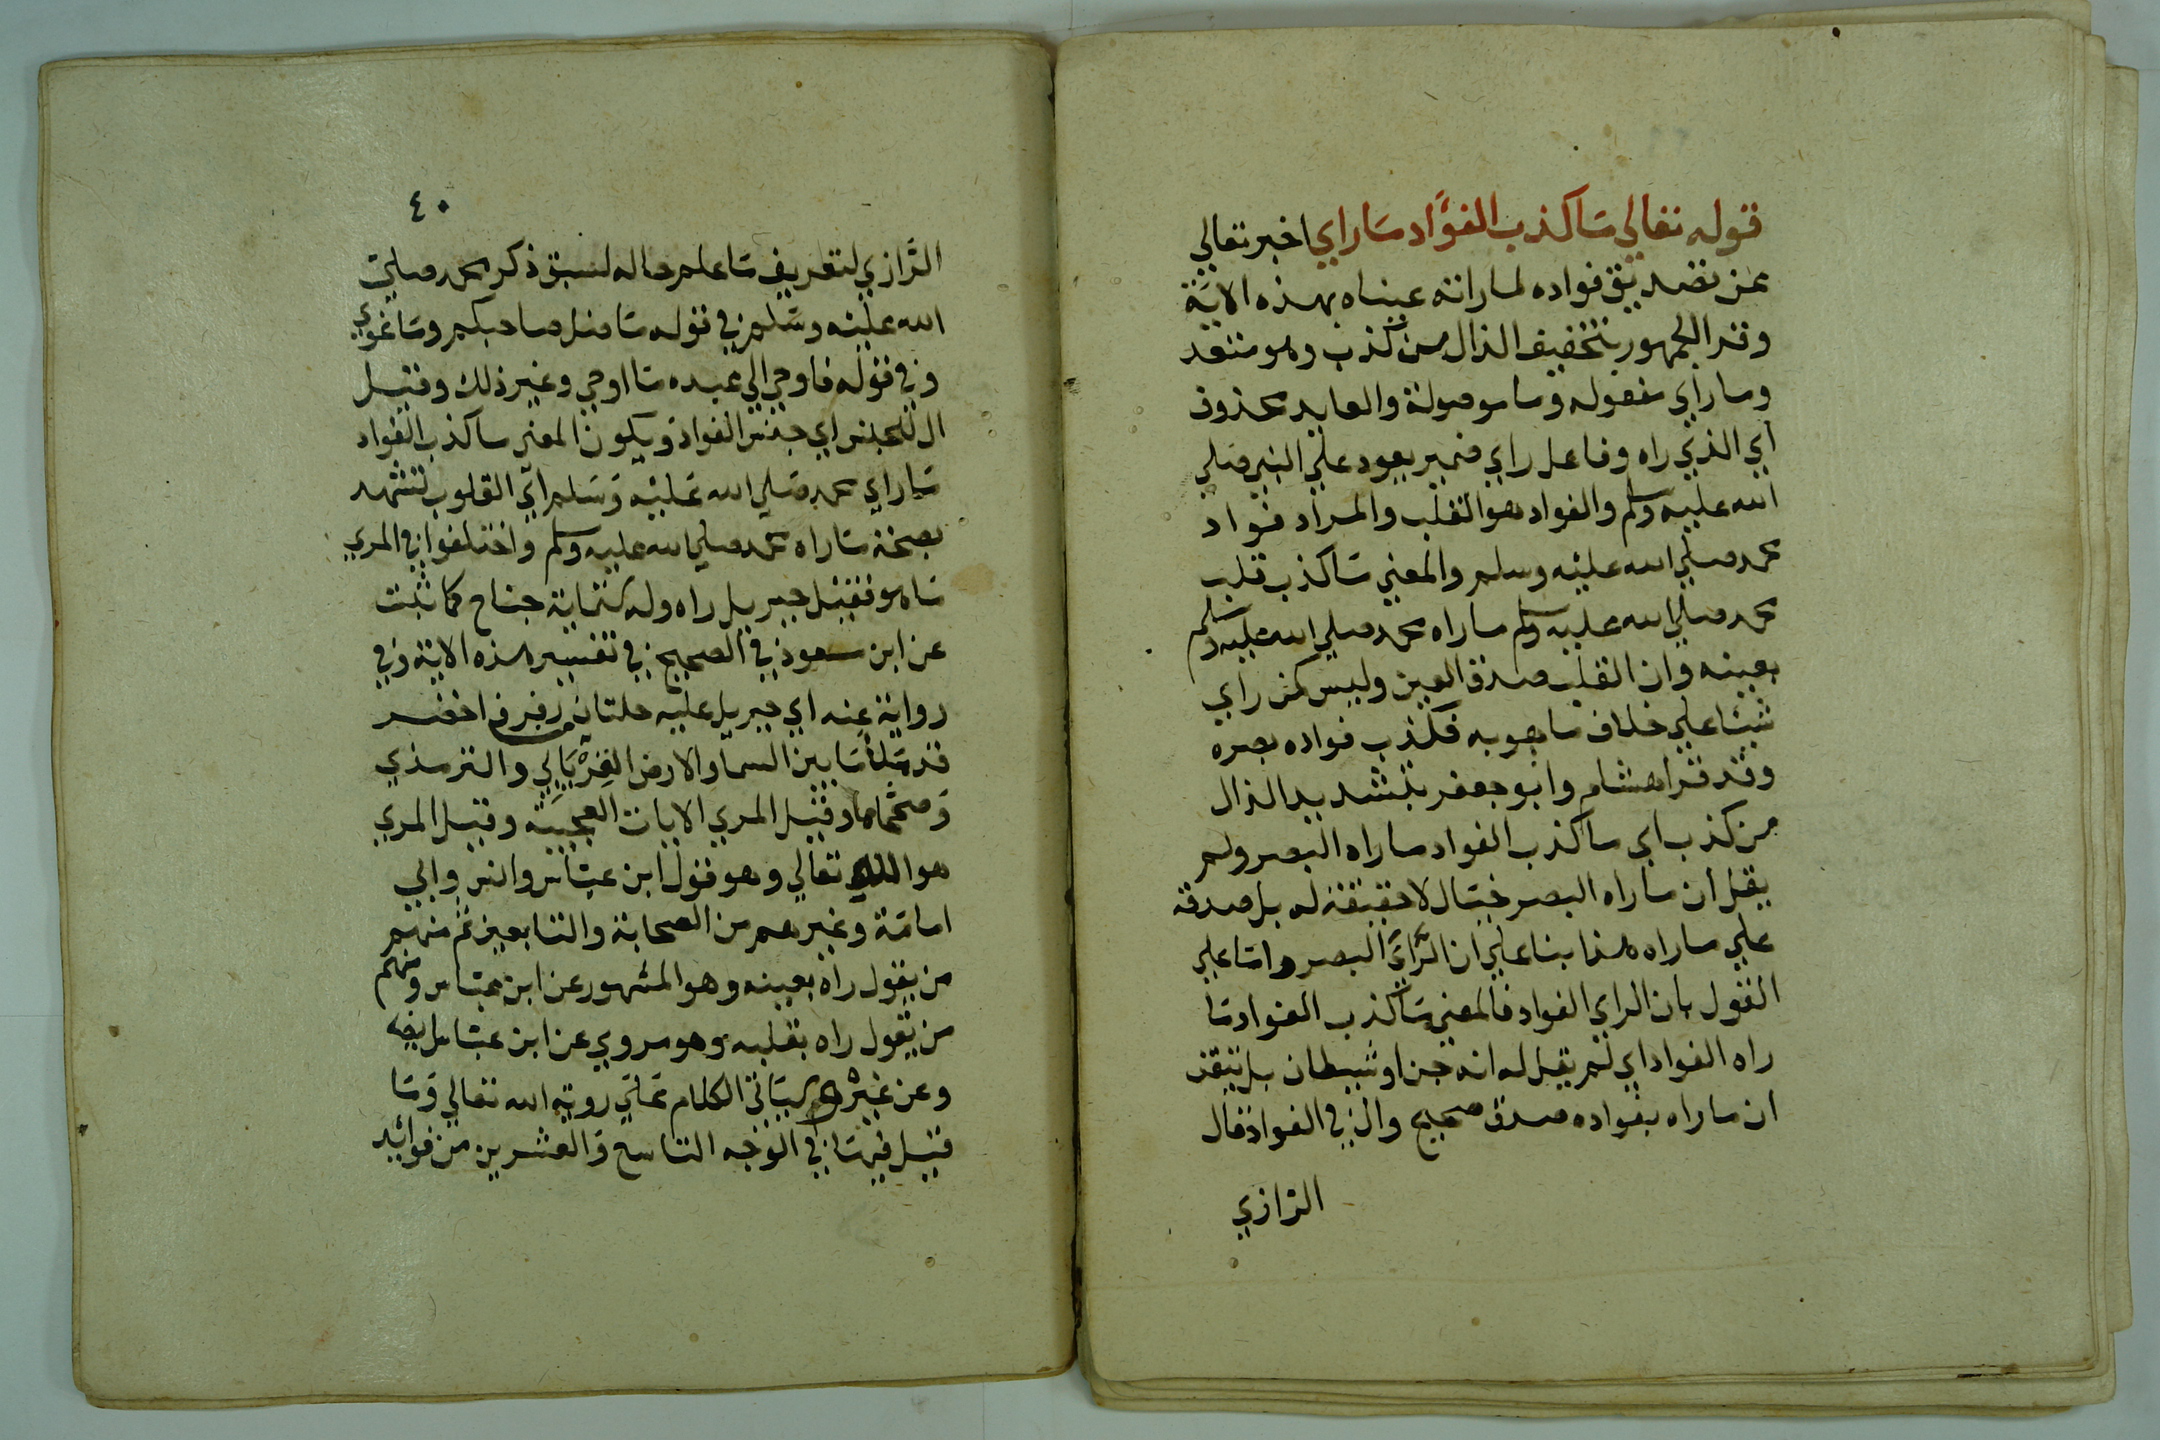 قوله تعالي ما كذب الفؤاد ما راي اخبر تعالي
عن تصديق فواده لما راته عيناه بهذه الاية
وقرا الجمهور بتخفيف الذال من كذب وهو متعد
وما راي مفعوله وما موصولة والعايد محذوف
اي الذي راه وفاعل راي ضمير يعود علي النبي صلي
الله عليه وسلم والفواد هو القلب والمراد فواد
محمد صلي الله عليه وسلم والمعني ما كذب قلب
محمد صلي الله عليه وسلم ما راه محمد صلي الله عليه وسلم
بعينه وان القلب صدق العين وليس كمن راي
شيئا علي خلاف ما هو به فكذب فواده بصره
وقد قرا هشام وابو جعفر بتشديد الذال
من كذب اي ما كذب الفواد ما راه البصر ولم
يقل ان ما راه البصر خيال لا حقيقة له بل صدقه
علي ما راه هذا بنا علي ان الرَّاي البصر واما علي
القول بان الراي الفواد فالمعني ما كذب الفواد ما
راه الفواد اي لم يقل له انه جن او شيطان بل تيقن
ان ما راه بفواده صدق صحيح وال في الفواد قال
الرازي
٤٠
الرَّازي لتعريف ما علم حاله لسبق ذكر محمد صلي
الله عليه وسلم في قوله ما ضل صاحبكم وما غوي
وفي قوله فاوحي الي عبده ما اوحي وغير ذلك وقيل
ال للجنس اي جنس الفواد ويكون المعني ما كذب الفواد
ما راي محمد صلي الله عليه وسلم اي القلوب تشهد
بصحة ما راه محمد صلي الله عليه وسلم واختلفوا في المري
ما هو فقيل جبريل راه وله ستماية جناح كما ثبت
عن ابن مسعود في الصحيح في تفسير هذه الاية وفي
رواية عنه اي جبريل عليه حلتان رفرف اخضر
قد ملأ ما بين السما والارض الفريابي والترمذي
وصححاها وقيل المري الايات العجيبة وقيل المري
هو الله تعالي وهو قول ابن عباس وانس وابي
امامة وغيرهم من الصحابة والتابعين ثم منهم
من يقول راه بعينه وهو المشهور عن ابن عباس ومنهم
من يقول راه بقلبه وهو مروي عن ابن عباس ايضا
وعن غيره وسياتي الكلام علي روية الله تعالي وما
قيل فيها في الوجه التاسع والعشرين من فوائد